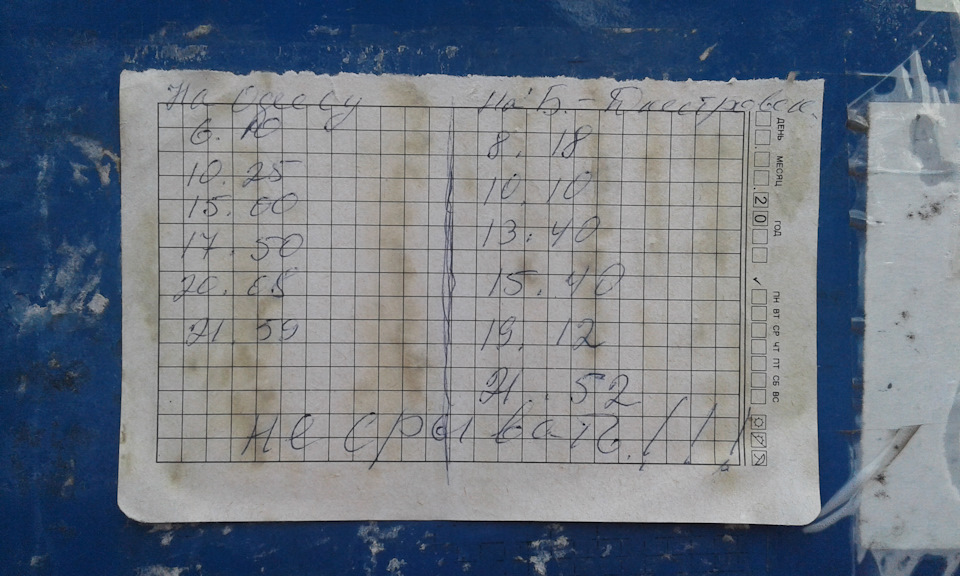 На Одессу
6. 10
10. 25
15. 00
17. 50
20. 05
21. 59
На Б.-Днестровск.
8. 18
10. 10
13: 40
15. 40
19. 12
21. 52
не срывать!!!
ДЕНЬ МЕСЯЦ 20 ГОД
ПН ВТ СР ЧТ ПТ СБ ВС